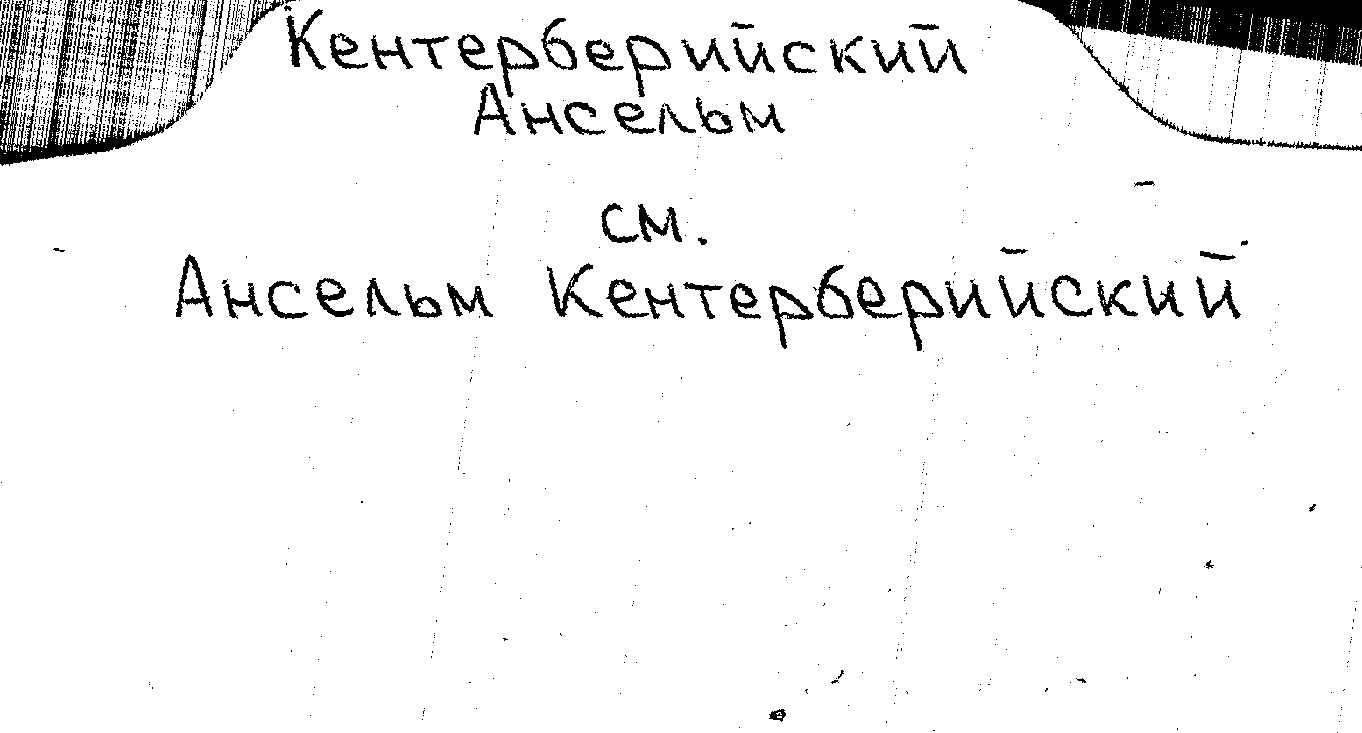 Кентерберийский
Ансельм
см.
Ансельм Кентерберийский